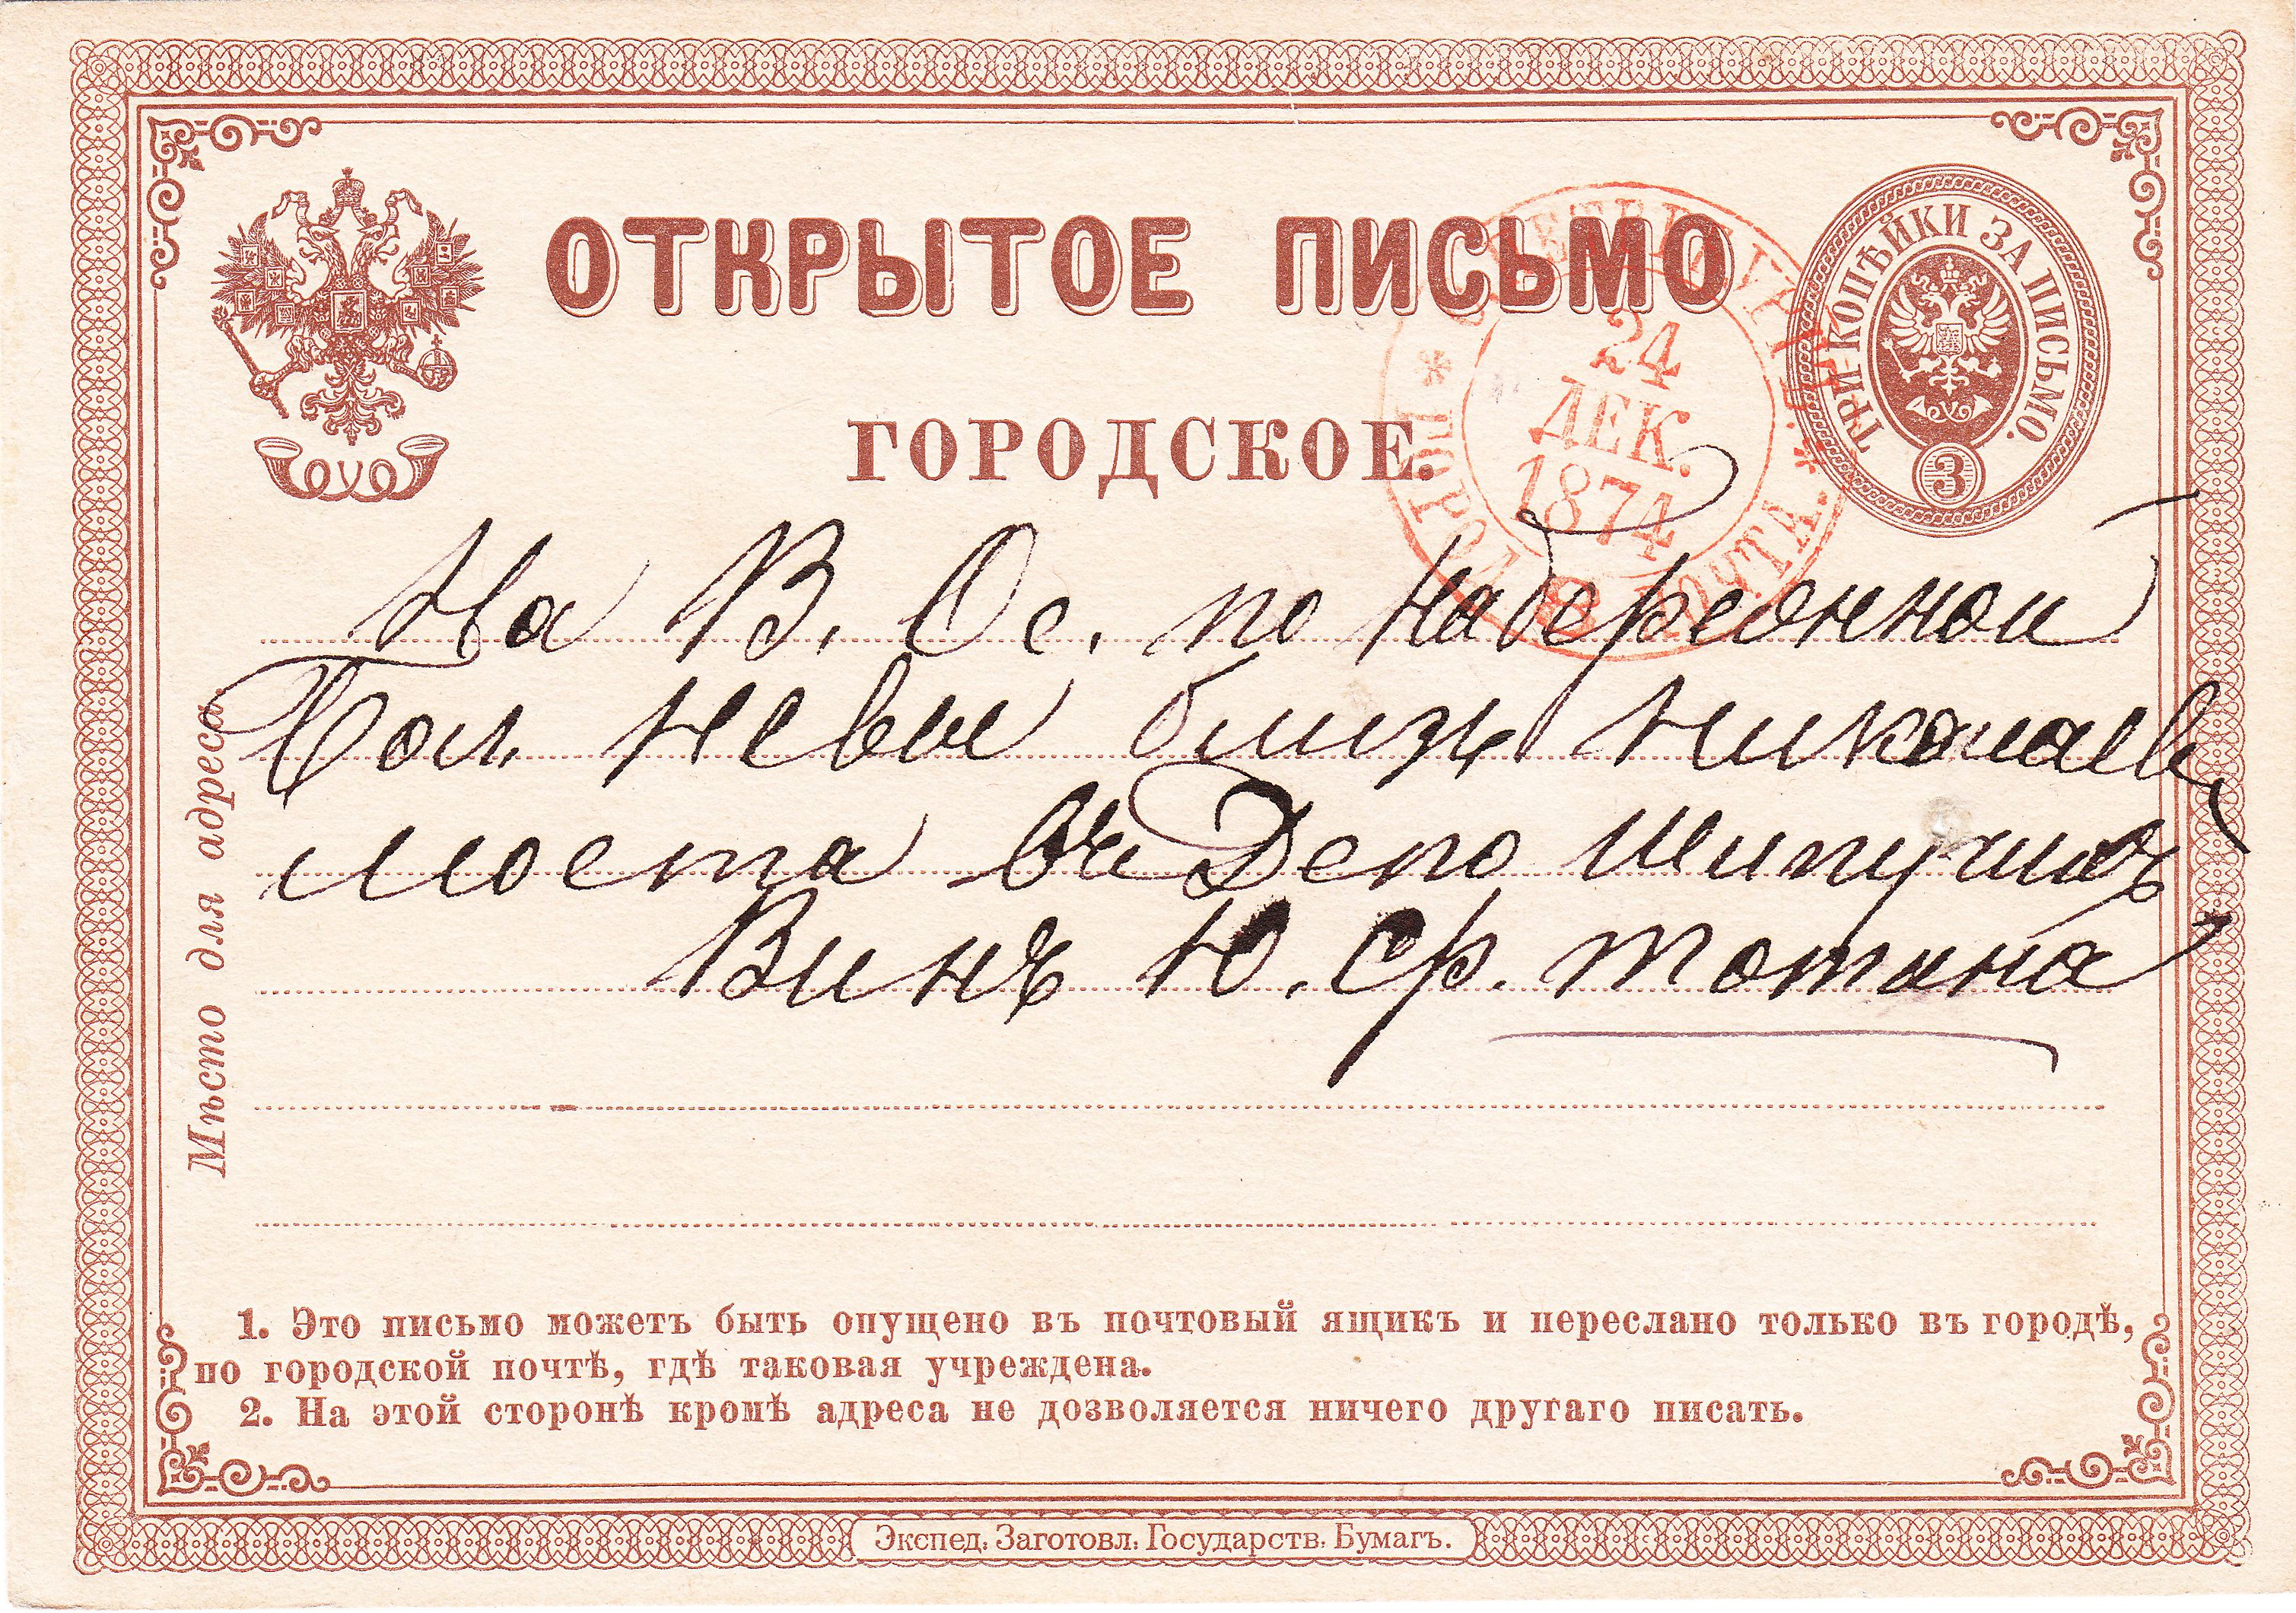 ОТКРЫТОЕ ПИСЬМО
ТРИ КОПѢЙКИ ЗА ПИСЬМО.
3
ГОРОДСКОЕ.
С. ПЕТЕРБУРГЪ
24
ДЕК.
1874
ГОРОД. ПОЧТА.
Мѣсто для адреса
На В. Ос. по Набережной
Бол. Невы близь Николаев
моста въ Депо Шипучихъ
Винъ Ю. Ср. Тотина
1. Это письмо можетъ быть опущено въ почтовый ящикъ и переслано только въ городѣ,
по городской почтѣ, гдѣ таковая учреждена.
2. На этой сторонѣ кромѣ адреса не дозволяется ничего другаго писать.
Экспед. Заготовл. Государств. Бумагъ.